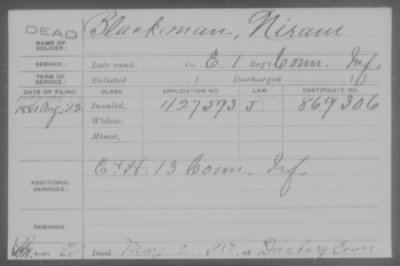 DEAD
NAME OF SOLDIER: Blackman, Niram
SERVICE: Late rank, Co. E. 1 Reg't Conn. Inf.
TERM OF SERVICE: Enlisted , 1 Discharged , 1
DATE OF FILING. CLASS. APPLICATION NO. LAW. CERTIFICATE NO.
1881 Aug. 22 Invalid, 427593 J. 869306
Widow,
Minor,
ADDITIONAL SERVICES: E & H. 13 Conn. Inf.
REMARKS:
Died May 2, 1917, at Danbury Conn